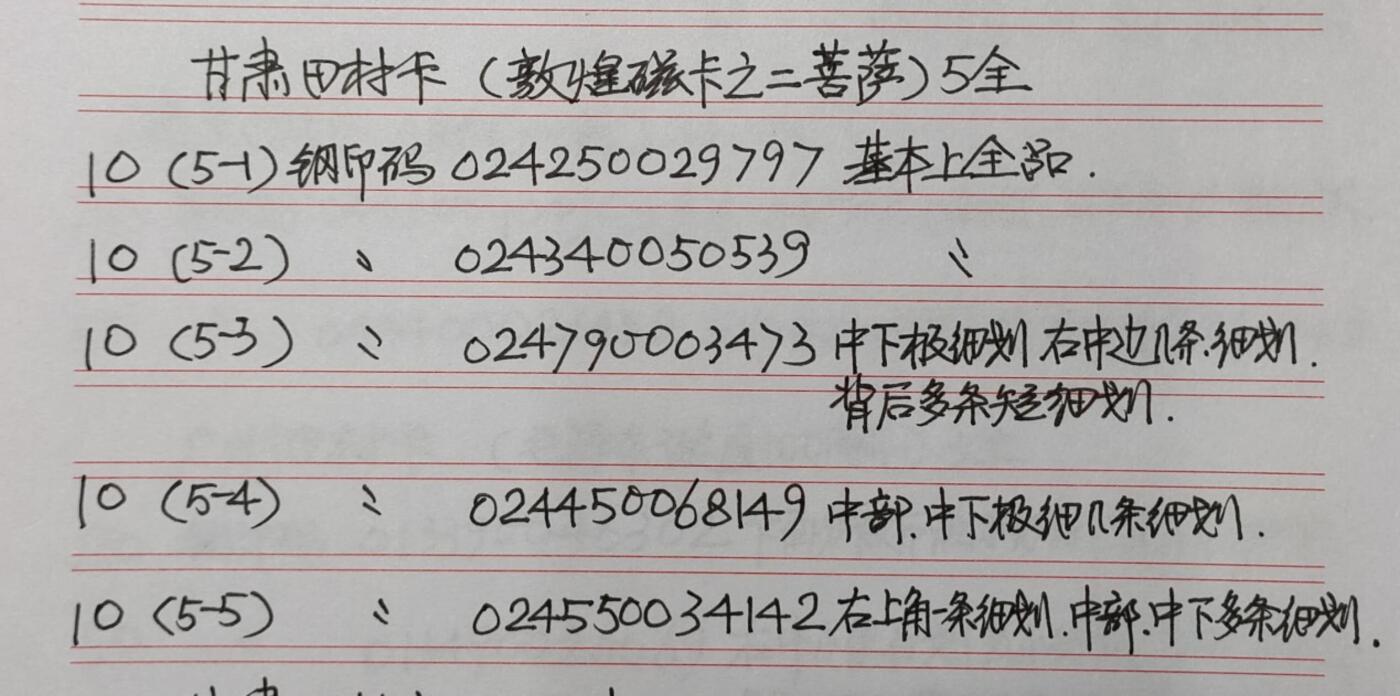 甘肃田村卡（敦煌磁卡之二菩萨）5全
10（5-1）钢印码 024250029797 基本上全品.
10（5-2） 〃 024340050539 〃
10（5-3） 〃 024790003473 中下极细划 右中边几条.细划.
背后多条短细划.
10（5-4） 〃 024450068149 中部.中下极细几条细划.
10（5-5） 〃 024550034142 右上角一条细划.中部.中下多条细划.